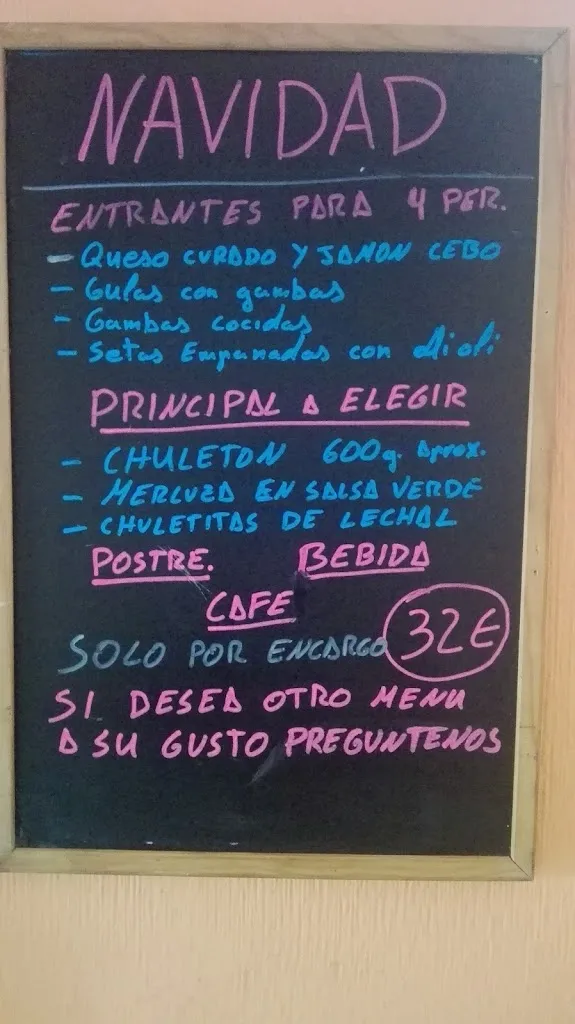 NAVIDAD
ENTRANTES PARA 4 PER.
- Queso CURADO Y JAMON CEBO
- Gulas con gambas
- Gambas cocidas
- Setas Empanadas con alioli
PRINCIPAL A ELEGIR
- CHULETON 600g. Aprox.
- MERLUZA EN SALSA VERDE
- CHULETITAS DE LECHAL
POSTRE. BEBIDA
CAFE
SOLO POR ENCARGO 32€
SI DESEA OTRO MENU
A SU GUSTO PREGUNTENOS